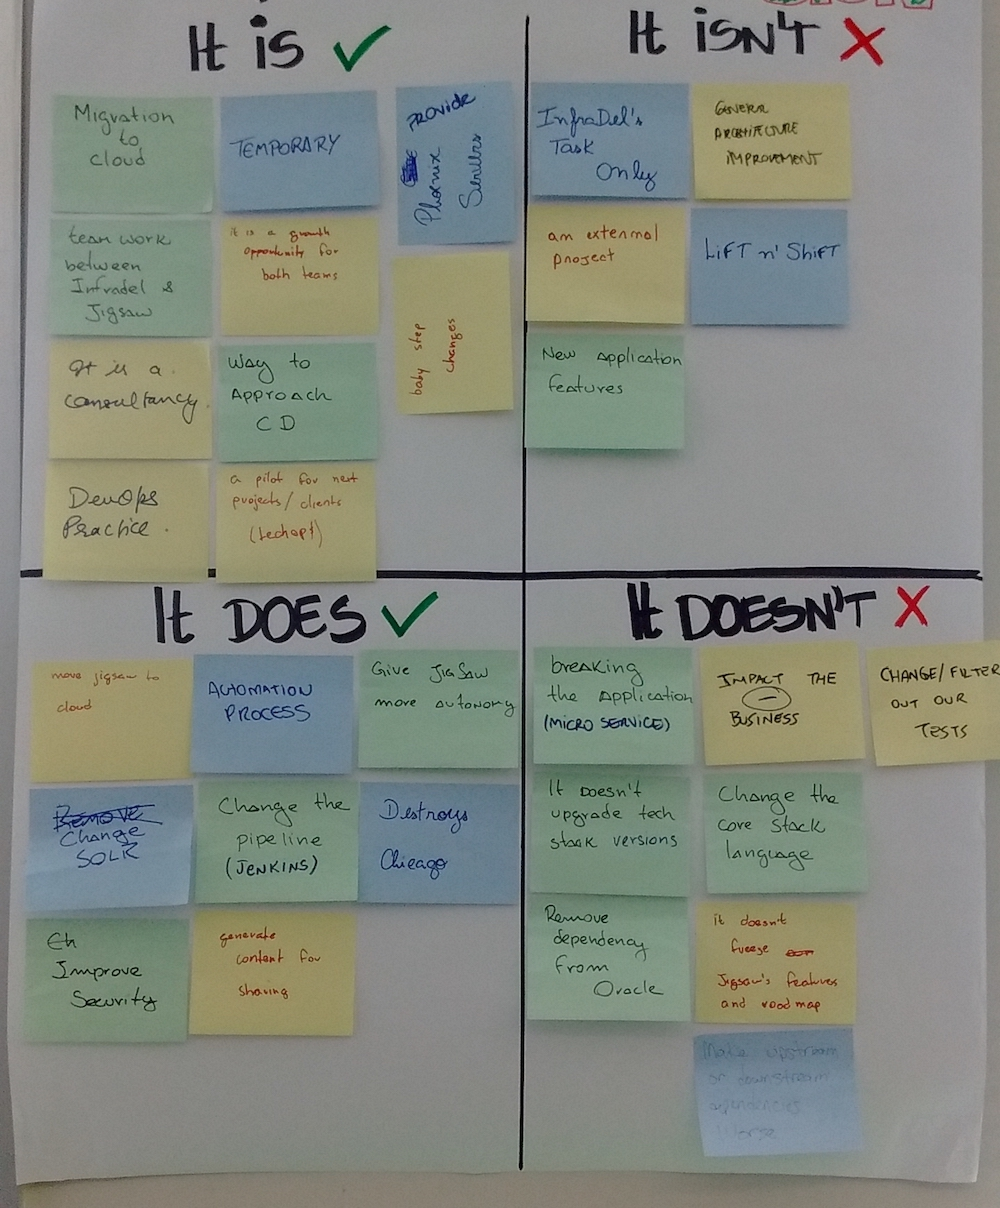 It is ✓
Migration
to
cloud
TEMPORARY
PROVIDE
Phoenix
Servers
team work
between
Infradel &
Jigsaw
it is a growth
opportunity for
both teams
baby step
changes
It is a
Consultancy.
Way to
Approach
CD
DevOps
Practice.
a pilot for next
projects/clients
(techops)
It isn't X
InfraDel's
Task
Only
GENERAL
ARCHITECTURE
IMPROVEMENT
an external
project
LiFT n' SHiFT
New Application
features
It DOES ✓
move jigsaw to
cloud
AUTOMATION
PROCESS
Give JigSaw
more autonomy
Remove
Change
SOLR
Change the
pipeline
(JENKINS)
Destroys
Chicago
Improve
Security
generate
content for
sharing
It DOESN'T X
breaking
the Application
(MICRO SERVICE)
IMPACT THE
-
BUSINESS
CHANGE/FILTER
OUT OUR
TESTS
It doesn't
upgrade tech
stack versions
Change the
core stack
language
Remove
dependency
from
Oracle
it doesn't
freeze
Jigsaw's features
and roadmap
Make upstream
or downstream